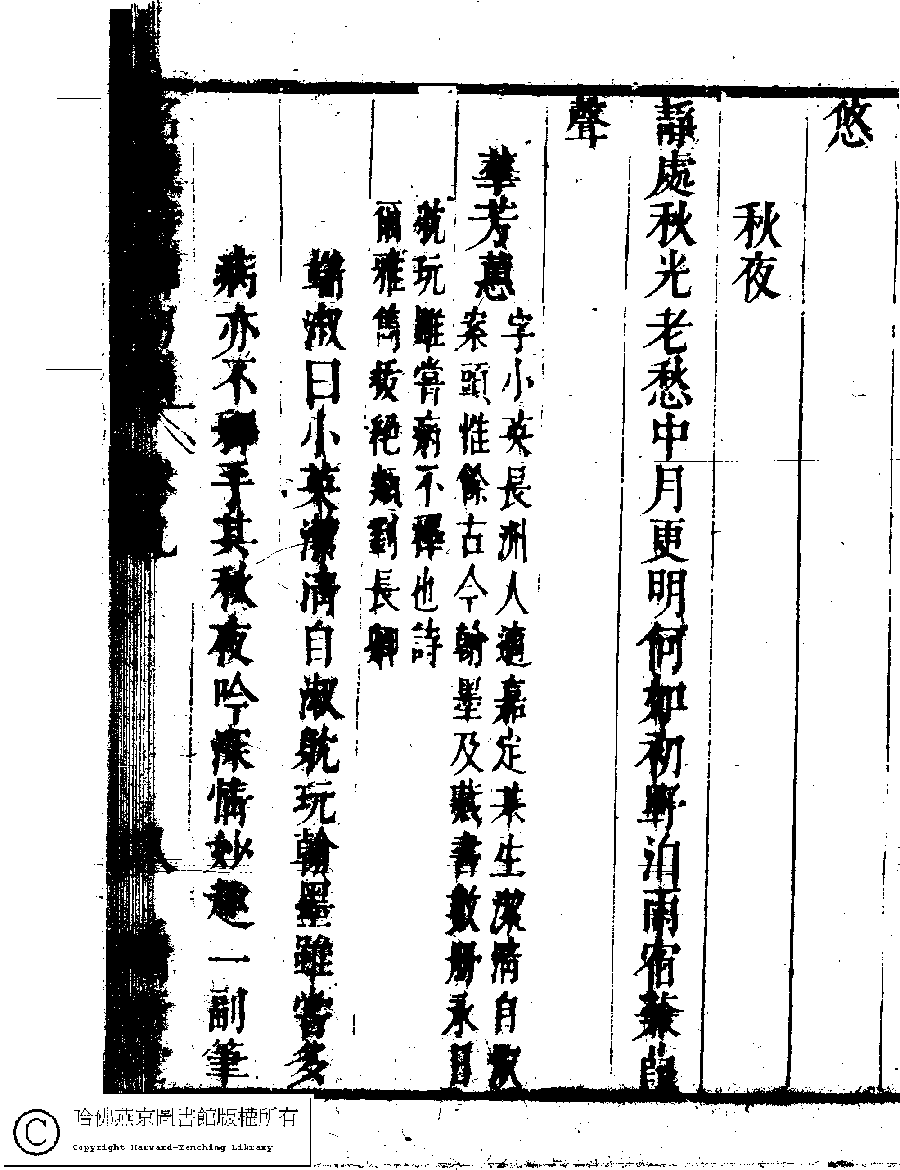 悠
秋夜
靜處秋光老愁中月更明何如初野泊雨宿蒹葭
聲
華芳蕙
字小英長洲人適嘉定某生潔情自淑
案頭惟餘古今翰墨及藏書數册永日
躭玩雖嘗病不釋也詩
爾雅雋拔絕類劉長卿
端淑曰小英潔清自淑躭玩翰墨雖嘗多
病亦不釋手其秋夜吟深情妙趣一副筆
哈佛燕京圖書館版權所有
Copyright Harvard-Yenching Library